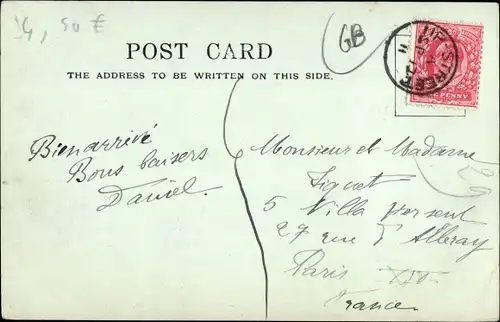 14,50 €
GB
POST CARD
THE ADDRESS TO BE WRITTEN ON THIS SIDE.
STREET
PENNY
Bien arrivé
Bons baisers
Daniel.
Monsieur et Madame
5 Villa
29 rue d'Alleray
Paris XV
France.